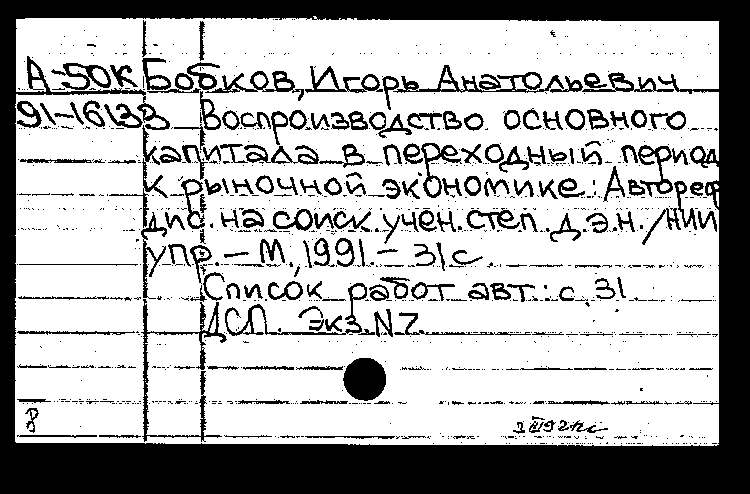 А-50К Бобков, Игорь Анатольевич.
91-16133 Воспроизводство основного
капитала в переходный период
к рыночной экономике: Автореф
дис. на соиск. учен. степ. д.э.н. /НИИ
упр. – М., 1991. – 31 с.
Список работ авт.: с. 31.
ДСП. Экз. N 7.
8